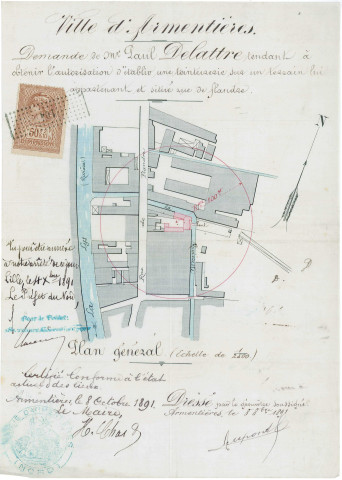 Ville d'Armentières.
Demande de Mr Paul Delattre tendant à
obtenir l'autorisation d'établir une teinturerie sur un terrain lui
appartenant et situé rue de flandre.
N
La Lys
Rue de Flandre
Vu pour être annexé
à notre arrêté de ce jour
Lille, le 1891
Le Préfet du Nord
Plan général (Echelle de
Certifié Conforme à l'état
actuel des lieux
Armentières le 8 Octobre 1891.
Le Maire,
Dressé par le géomètre soussigné
Armentières, le 8 8bre 1891